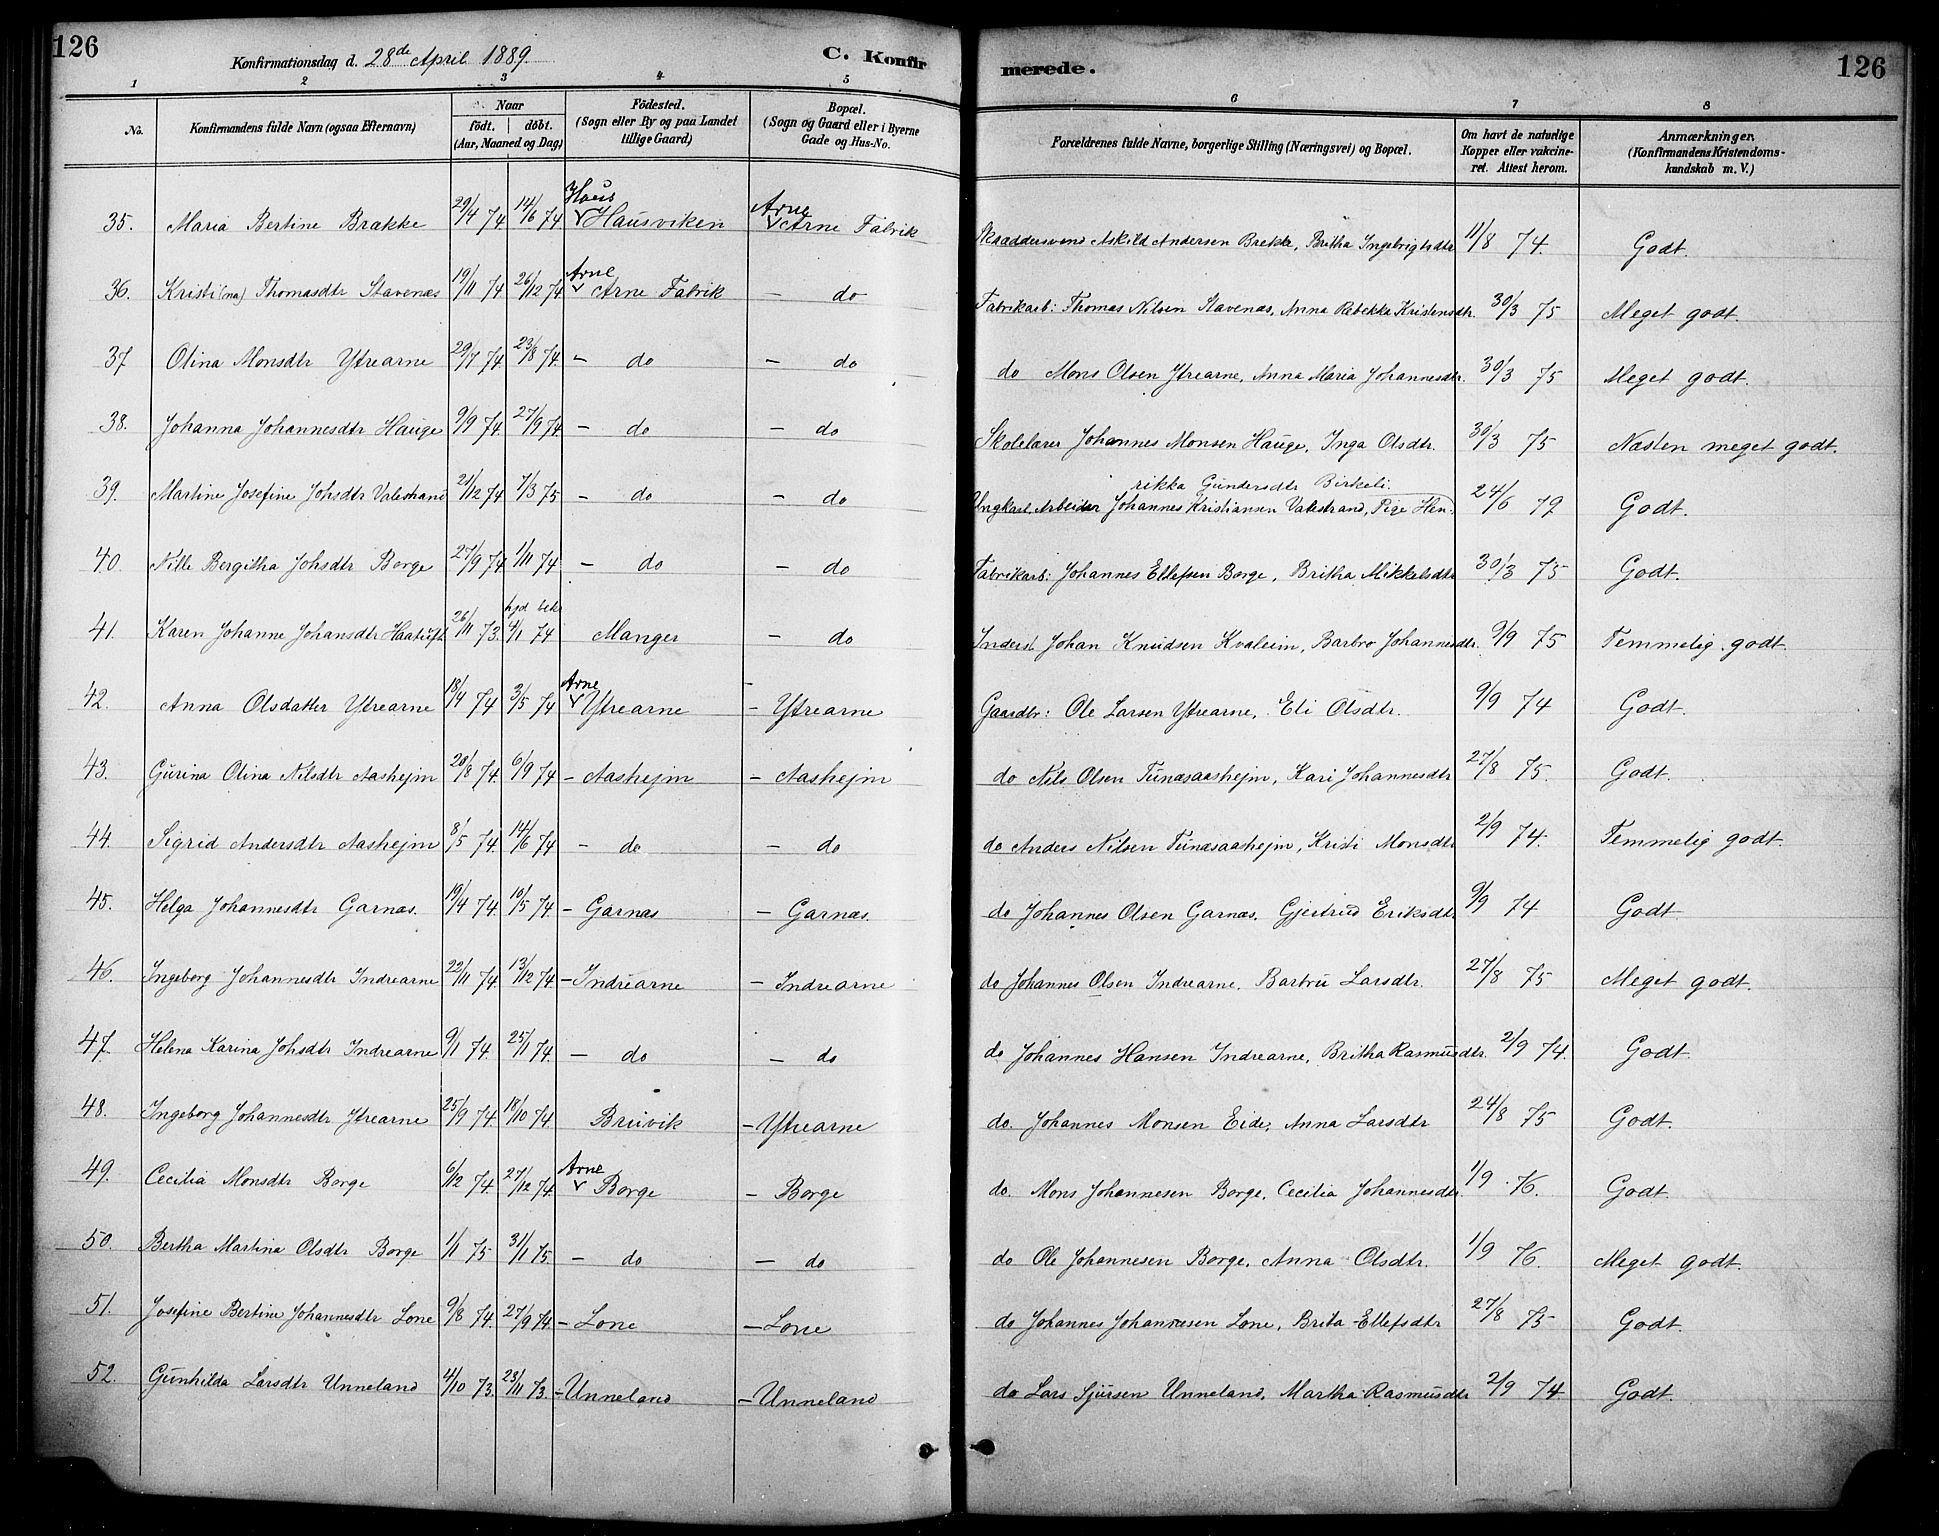 126
Konfirmationsdag d. 28de April 1889.
C. Konfirmerede.
126
1 2 3 4 5 6 7 8
No.
Konfirmandens fulde Navn (ogsaa Efternavn)
Naar
født. døbt.
(Aar, Maaned og Dag)
Födested.
(Sogn eller By og paa Landet
tillige Gaard)
Bopæl.
(Sogn og Gaard eller i Byerne
Gade og Hus-No.
Forældrenes fulde Navne, borgerlige Stilling (Næringsvei) og Bopæl.
Om havt de naturlige
Kopper eller vakcine-
ret. Attest herom.
Anmærkninger.
(Konfirmandens Kristendoms-
kundskab m. V.)
35. Maria Bertine Brække 29/4 74 14/6 74 Haus Hausviken Arne Arne Fabrik Skræddersvend Askild Andersen Brekke, Britha Ingebrigtsdtr 11/8 74. Godt.
36. Kristi(na) Thomasdtr Stavenæs 19/11 74 26/12 74 Arne Arne Fabrik — do Fabrikarb: Thomas Nilsen Stavenæs, Anna Rebekka Kristensdtr. 30/3 75 Meget godt.
37 Olina Monsdtr Ytrearne 29/7 74. 23/8 74. — do — do do Mons Olsen Ytrearne, Anna Maria Johannesdtr. 30/3 75 Meget godt.
38. Johanna Johannesdtr Hauge 9/9 74. 27/9 74 — do — do Skolelærer Johannes Monsen Hauge, Inga Olsdtr. 30/3 75 Næsten meget godt.
39. Martine Josefine Johsdtr Valestrand 21/12 74 7/3 75 — do — do Ungkarl, Arbeider Johannes Kristiansen Valestrand, Pige Hen-
rikka Gundersdtr Birkeli. 24/6 79 Godt.
40. Nille Bergitha Johsdtr Borge 27/9 74 1/11 74 — do — do Fabrikarb: Johannes Ellefsen Borge, Britha Mikkelsdtr 30/3 75 Godt.
41. Karen Johanne Johansdtr Haatuft 26/11 73. hjd bekr 4/1 74 Manger — do Inderst Johan Knudsen Kvaleim, Barbro Johannesdtr. 9/9 75 Temmelig godt.
42. Anna Olsdatter Ytrearne 18/4 74 3/5 74 Arne Ytrearne — Ytrearne Gaardbr: Ole Larsen Ytrearne, Eli Olsdtr. 9/9 74 Godt.
43. Gurina Olina Nilsdtr Aashejm 20/8 74. 6/9 74 — Aashejm — Aashejm do Nils Olsen Tunæsaashejm, Kari Johannesdtr 27/8 75. Godt.
44. Sigrid Andersdtr Aashejm 8/5 74. 14/6 74 — do — do do Anders Nilsen Tunæsaashejm, Kristi Monsdtr 2/9 74. Temmelig godt.
45. Helga Johannesdtr Garnæs. 19/4 74. 10/5 74. — Garnæs — Garnæs. do Johannes Olsen Garnæs. Gjertrud Eriksdtr 9/9 74 Godt
46. Ingeborg Johannesdtr Indrearne 22/11 74. 13/12 74 — Indrearne — Indrearne do Johannes Olsen Indrearne. Barbru Larsdtr. 27/8 75 Meget godt.
47. Helena Karina Johsdtr Indrearne 9/1 74. 25/1 74. — do — do do Johannes Hansen Indrearne, Britha Rasmusdtr. 2/9 74. Godt.
48. Ingeborg Johannesdtr Ytrearne 25/9 74. 18/10 74 Bruvik — Ytrearne do. Johannes Monsen Eide, Anna Larsdtr 24/8 75 Godt.
49. Cecilia Monsdtr Borge 6/12 74. 27/12 74 Arne Borge — Borge do. Mons Johannesen Borge, Cecilia Johannesdtr 1/9 76. Godt.
50. Bertha Martina Olsdtr Borge 1/1 75 31/1 75. — do — do do Ole Johannesen Borge, Anna Olsdtr. 1/9 76. Meget godt.
51. Josefine Bertine Johannesdtr Lone 9/8 74. 27/9 74. — Lone — Lone do Johannes Johannesen Lone, Brita Ellefsdtr 27/8 75 Godt.
52. Gunhilda Larsdtr Unneland 4/10 73. 23/11 73. — Unneland — Unneland do Lars Sjursen Unneland, Martha Rasmusdtr 2/9 74 Godt.